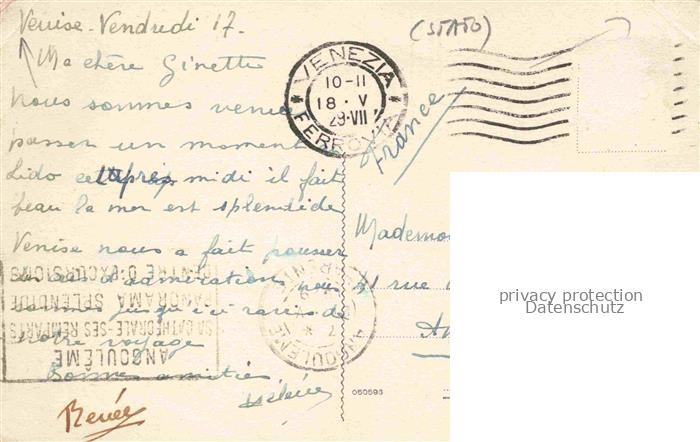 Venise - Vendredi 17.
(STATO)
Ma chère Ginette
nous sommes venus
passer un moment
Lido cet après midi il fait
beau la mer est splendide
Venise nous a fait pousser
d'admiration, nous
sommes jusqu'ici ravies de
notre voyage
Bonnes amitiés
Hélène
Renée
VENEZIA
10-11
18 · V
29·VII
FERROVIA
France
Mademoi
21 rue
An
ANGOULEME
SA CATHEDRALE-SES REMPARTS
PANORAMA SPLENDIDE
CENTRE D'EXCURSIONS
ANGOULEME
050593
privacy protection
Datenschutz